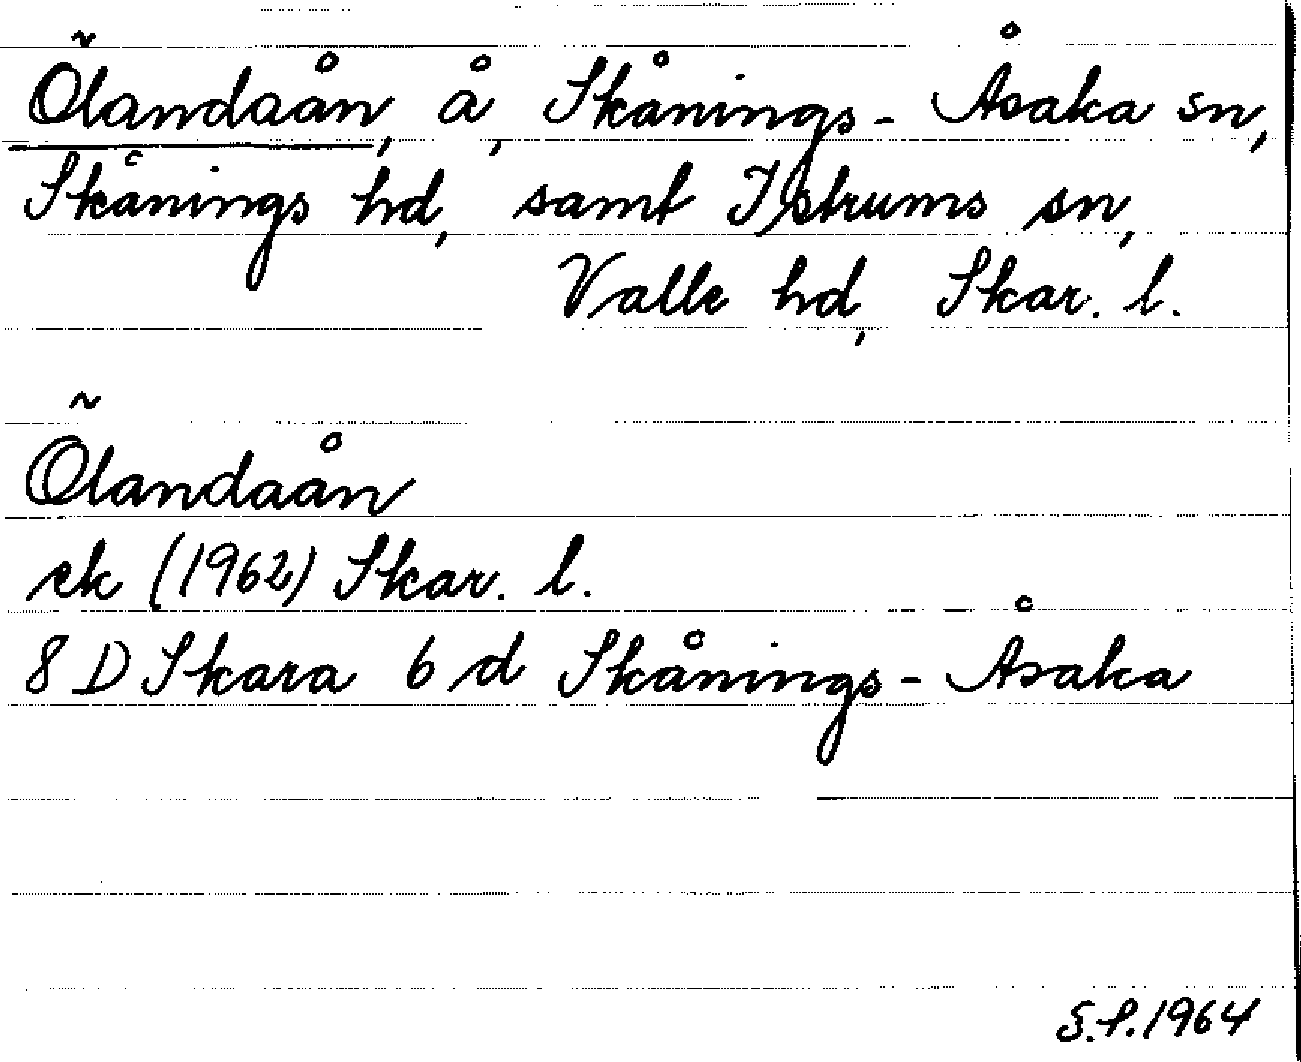 Ölandaån, å, Skånings-Åsaka sn,
Skånings hd, samt Istrums sn,
Valle hd, Skar. l.
Ölandaån
ek (1962) Skar. l.
8 D Skara 6 d Skånings-Åsaka
S.P. 1964